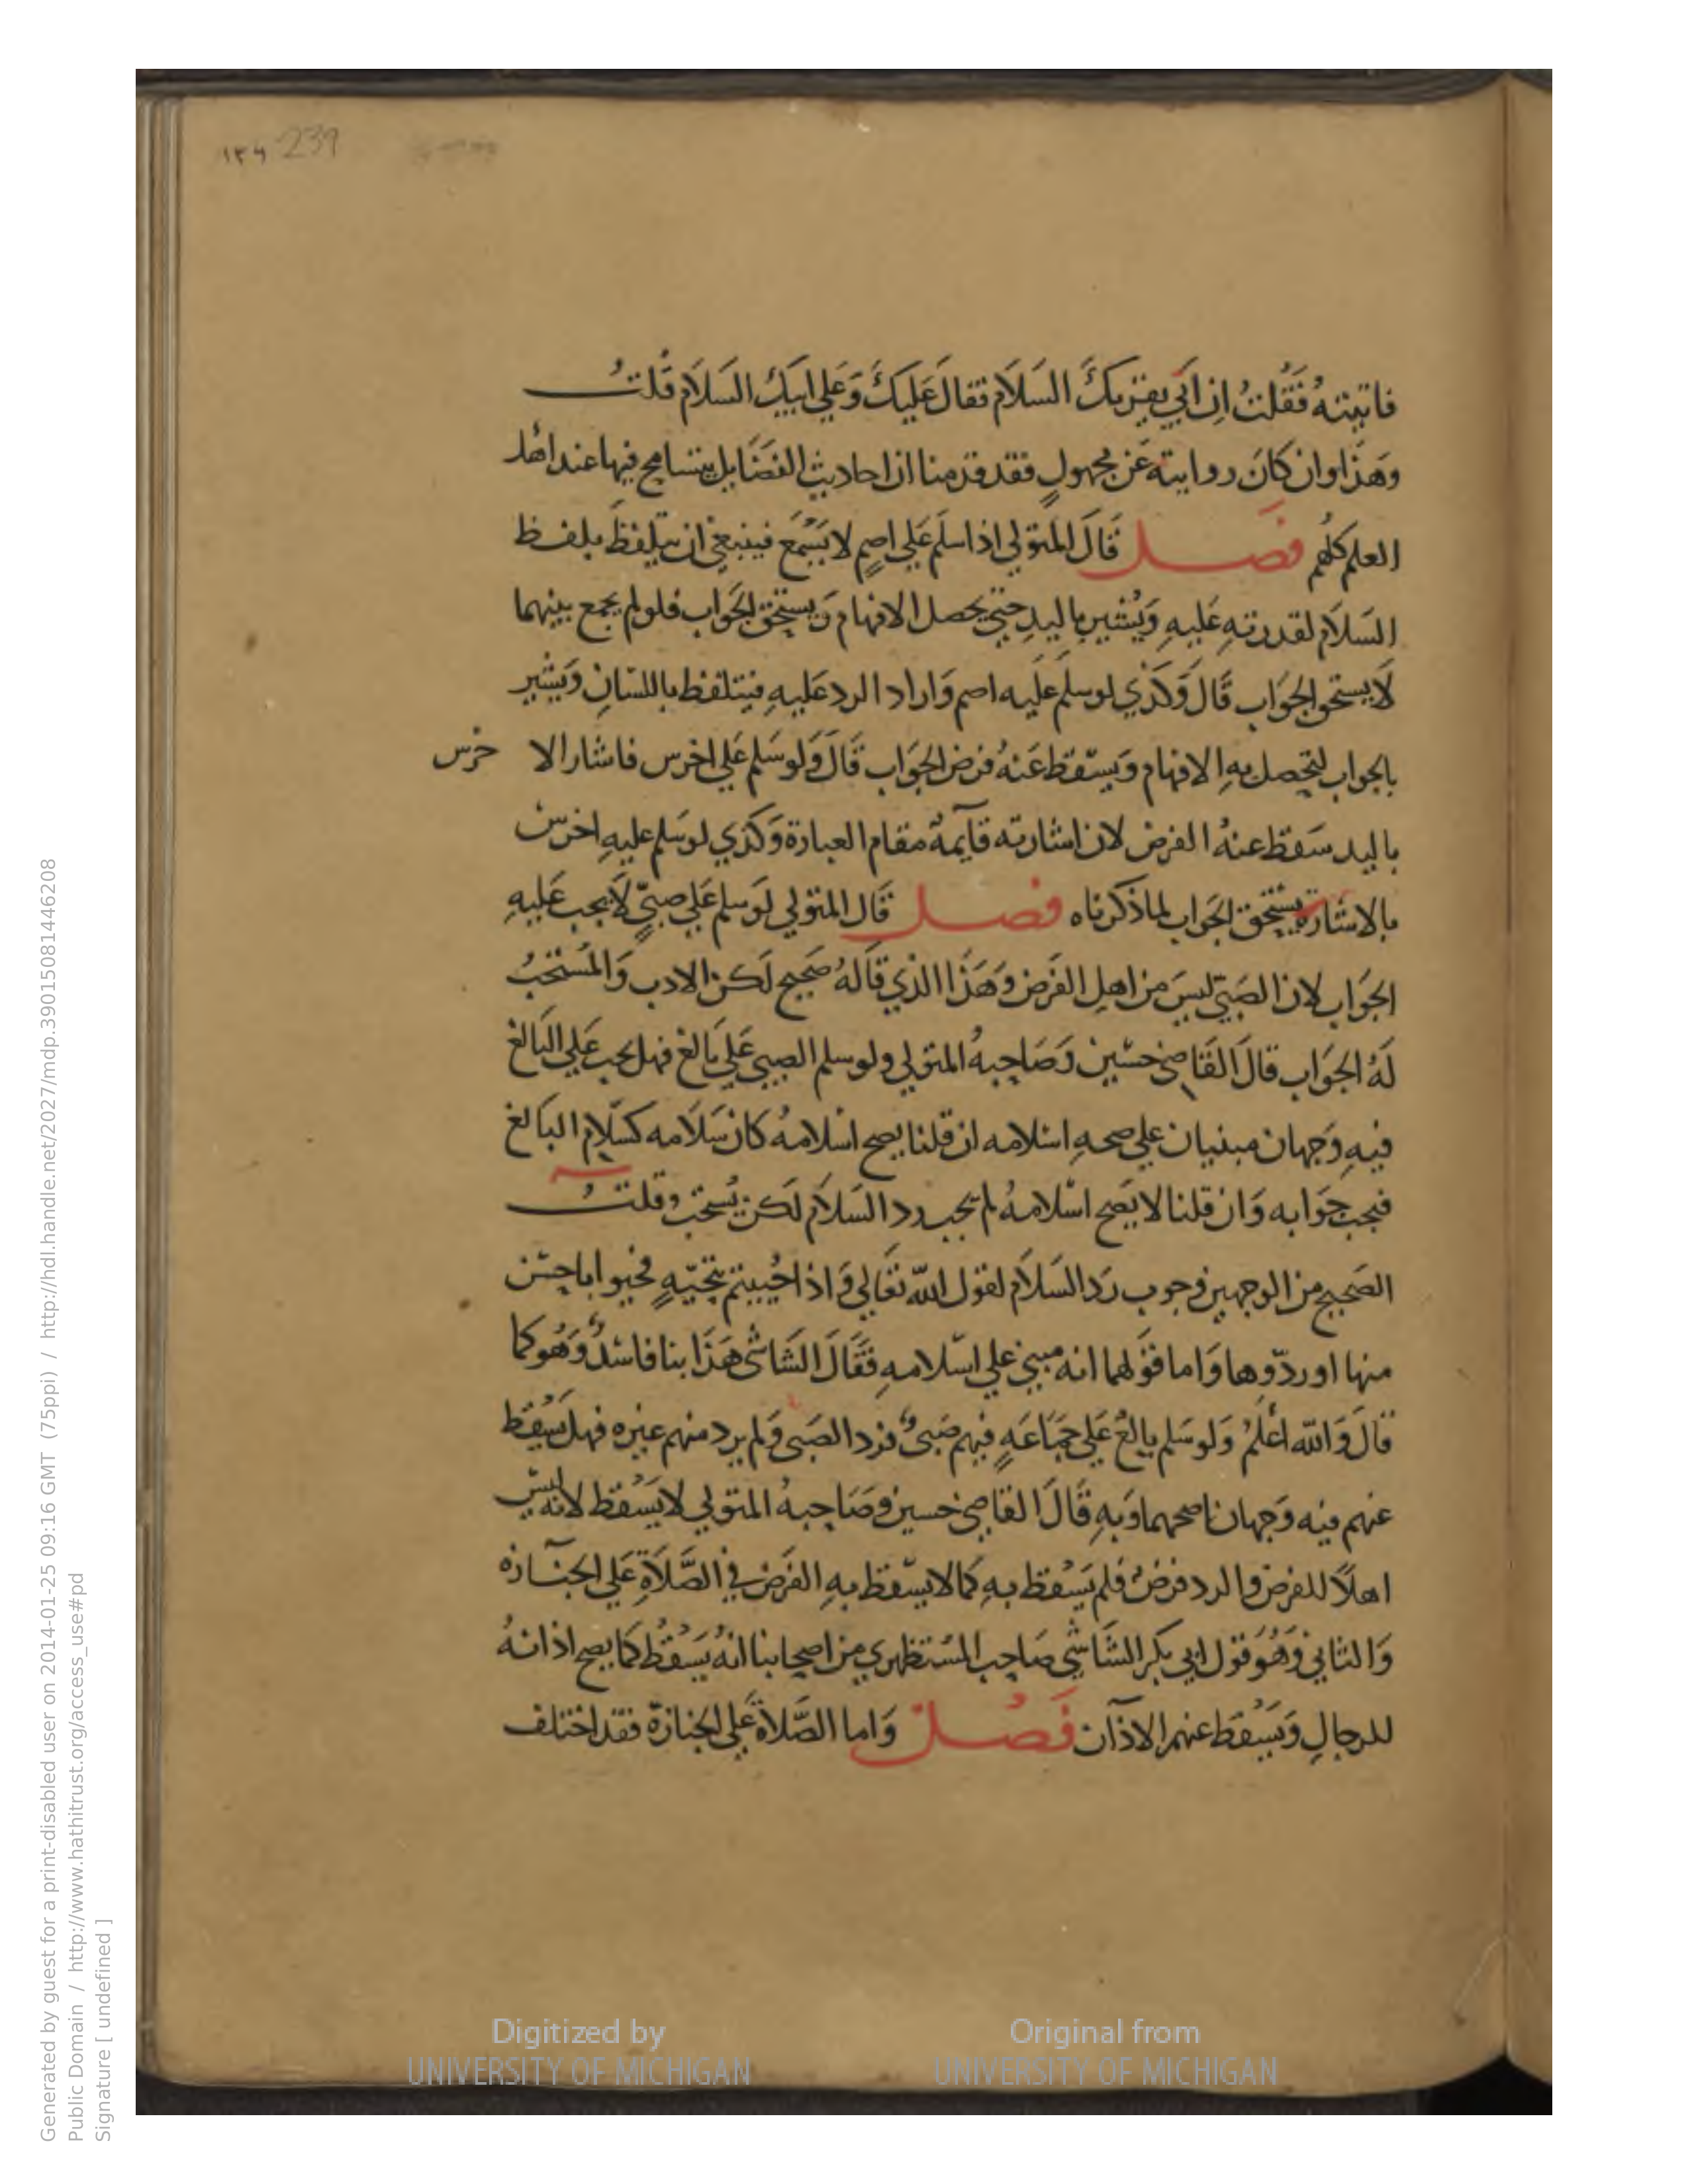 ١٣٩ 239
فاتيته فَقُلتُ اِن اَبي يقريكَ السَلاَم فقالَ عَلَيكَ وَعَلي ابيكَ السَلاَم قلتُ
وَهَذا وان كانَ روايته عَن مجهولٍ فقد قدمنا ان احاديث الفضَايل يتسامح فيها عند اهل
العلم كلهم فَصـل قَالَ المتولي اذا سلم عَلي اصمٍ لا يَسْمَع فينبغي ان يتلفظَ بلفظ
السَلاَم لقدرتهِ عَليهِ وَيُشير باليدِ حتي يحصل الافهام وَيستحق الجَوَاب فلو لم يجمع بينهما
لَا يستحق الجوَاب قَالَ وَكذي لو سلم عَلَيه اصم وَاراد الرد عَليهِ فيتلفظ باللسَانِ وَيشير
بالجواب ليحصل بهِ الافهام وَيسْقط عَنهُ فرض الجوَاب قَالَ وَلو سَلم عَلي اخرس فاشار الا خرس
باليد سَقط عنهُ الفرض لان اشارته قآيمة مقام العبارة وَكذي لو سَلم عليهِ اخرس
بالاشارة يستحق الجَواب لما ذكرناه فصـل قَال المتولي لَو سلم عَلي صبيٍّ لَا يجب عَليهِ
الجَوَاب لان الصَبيّ ليسَ من اهلِ الفَرض وَهَذَا الذي قاَلهُ صَحيح لَكن الادب وَالمُستحَبُ
لَهُ الجوَاب قالَ القَاضي حسَين وَصَاحِبهُ المتولي ولو سلم الصبي عَلي بَالغ فهل يجب عَلي البَالغ
فيهِ وَجهان مبنيان علي صحهِ اسْلامه ان قلنا يصح اسْلامهُ كان سَلاَمه كسَلاَمِ البَالغ
فيجب جوَابه وَان قلنا لا يَصح اسْلامهُ لم يجب رد السَلاَم لَكن يُستحَب وقلتُ
الصَحيح من الوجهين وجوب رَد السَلاَم لقول اللّه تعَالي وَاذا حُييتم بتحيّهٍ فحيوا باحسَن
منها او ردّوها وَاما قوَلهما انه مبني علي اسْلامهِ فقَالَ الشَاشي هَذَا بنا فاسْدٌ وَهُو كما
قالَ وَاللّه اَعْلَمُ وَلو سَلم بالغُ عَلي جمَاعَهٍ فيهم صَبيُ فرد الصَبي وَلم يرد منهم غيره فهل يَسْقط
عنهم فيه وَجهان اصحهما وَبهِ قَالَ القاضي حسين وصَاحبهُ المتولي لا يَسْقط لانه ليسَ
اهلاً للفرض والرد فرضُ فلم يَسْقط بهِ كما لا يسْقط بهِ الفَرض في الصَّلاَةِ عَلي الجنَـازه
وَالثاني وَهُوَ قول ابي بكر الشَاشي صَاحب المسْتظهري من اصحابنا انهُ يَسْقُطُ كما يصح اذانهُ
للرجالِ وَيَسْقط عنهم الاذآن فَصُـل وَاما الصَّلاَة عَلي الجنازة فقد اختلف
Digitized by
UNIVERSITY OF MICHIGAN
Original from
UNIVERSITY OF MICHIGAN
Generated by guest for a print-disabled user on 2014-01-25 09:16 GMT (75ppi) / http://hdl.handle.net/2027/mdp.39015081446208
Public Domain / http://www.hathitrust.org/access_use#pd
Signature [ undefined ]